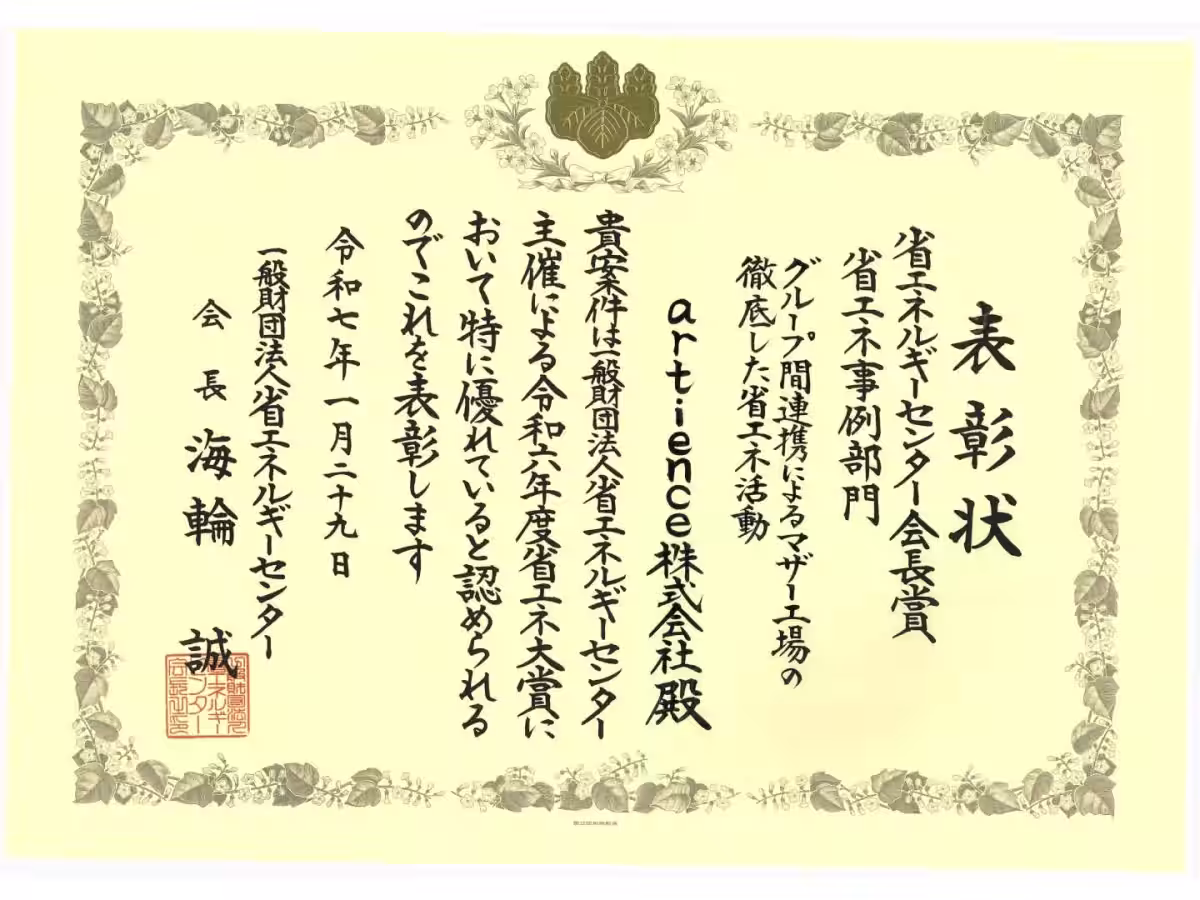 表彰状
省エネルギーセンター会長賞
省エネ事例部門
グループ間連携によるマザー工場の
徹底した省エネ活動
artience株式会社殿
貴案件は一般財団法人省エネルギーセンター
主催による令和六年度省エネ大賞に
おいて特に優れていると認められる
のでこれを表彰します
令和七年一月二十九日
一般財団法人省エネルギーセンター
会長 海輪 誠